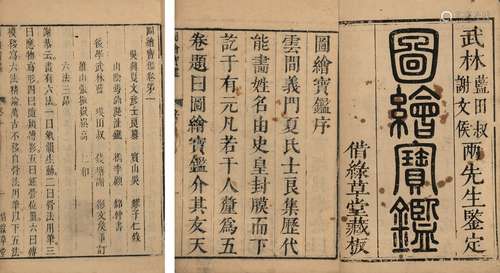 武林藍田叔謝文侯兩先生鑒定
圖繪寶鑑
借綠草堂藏板
圖繪寶鑑序
雲間義門夏氏士良集歷代
能畵姓名由史皇封膜而下
訖于有元凡若干人釐爲五
卷題曰圖繪寶鑑介其友天
圖繪寶鑑卷第一
六法三品
謝赫云畫有六法一曰氣韻生動二曰骨法用筆三
曰應物寫形四曰隨類傅彩五曰經營位置六曰傳
模移寫六法精論萬古不移自骨法用筆以下五